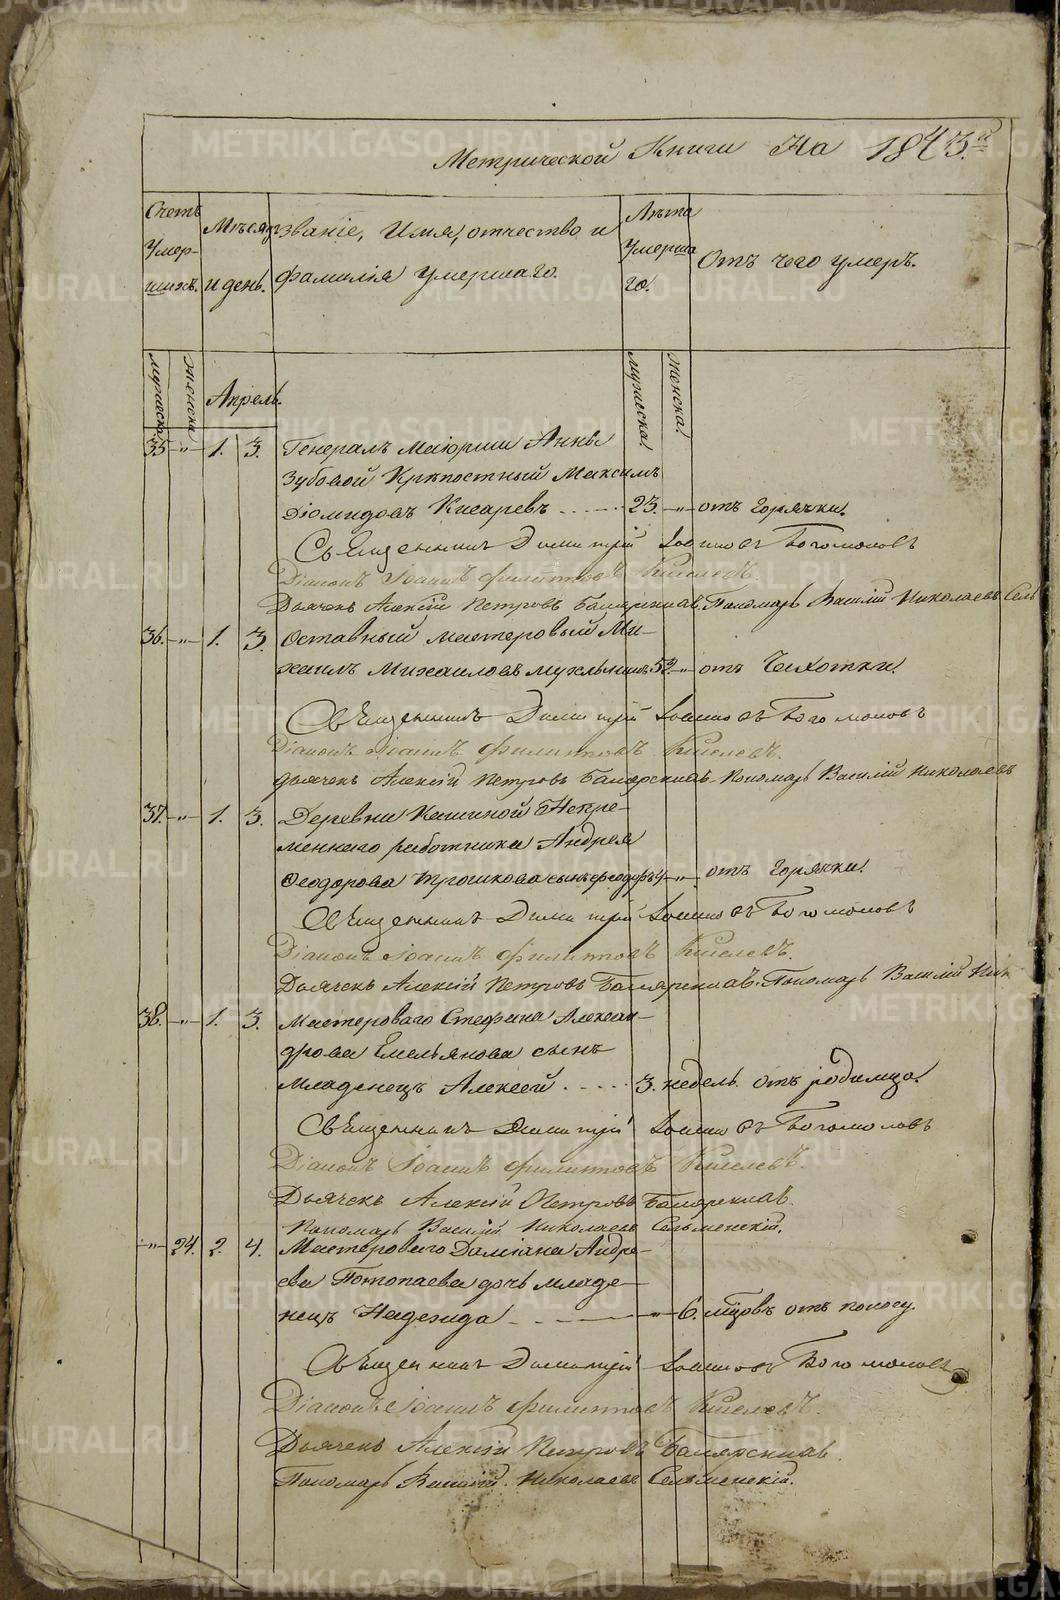 Метрической Книги На 1843.й
Счетъ умер-шихъ.
Мѣсяцъ и день.
званіе, Имя, отчество и фамилія умершаго.
Лѣта умерша го.
Отъ чего умеръ.
мужеска. женска. Апрель. мужеска. женска.
35 -"- 1. 3. Генералъ Маіорши Анны
Зубовой Крѣпостный Максимъ
Діомидовъ Кисаревъ 23. -"- отъ Горячки.
Священникъ Димитрій Іоанновъ Богомоловъ
Діаконъ Іоаннъ Филипповъ Киселевъ.
Дьячекъ Алексій Петровъ Пономарь Василій Николаевъ Сель
36. -"- 1. 3. Оставный мастеровый Ми-
хаилъ Михаиловъ 52. -"- отъ Чихотки.
Священникъ Димитрій Іоанновъ Богомоловъ
Діаконъ Іоаннъ Филипповъ Киселевъ.
Дьячекъ Алексій Петровъ Пономарь Василій Николаевъ
37. -"- 1. 3. Деревни Кашиной Непре-
меннаго работника Андрея
Ѳеодорова Трошкова сынъ Ѳеодоръ 4 -"- отъ Горячки.
Священникъ Димитрій Іоанновъ Богомоловъ
Діаконъ Іоаннъ Филипповъ Киселевъ.
Дьячекъ Алексій Петровъ Пономарь Василій Ник
38. -"- 1. 3. Мастероваго Стефана Алексан-
дрова Емельянова сынъ
Младенецъ Алексей 3. недель отъ родимца.
Священникъ Димитрій Іоанновъ Богомоловъ
Діаконъ Іоаннъ Филипповъ Киселевъ.
Дьячекъ Алексій Петровъ
Пономарь Василій Николаевъ Сельменскій.
-"- 24. 2. 4. Мастероваго Даміана Андре-
ева Потопаева дочь младе-
нецъ Надежда -"- 6. мцовъ отъ поносу.
Священникъ Димитрій Іоанновъ Богомоловъ
Діаконъ Іоаннъ Филипповъ Киселевъ.
Дьячекъ Алексій Петровъ
Пономарь Василій Николаевъ Сельменскій.
METRIKI.GASO-URAL.RU